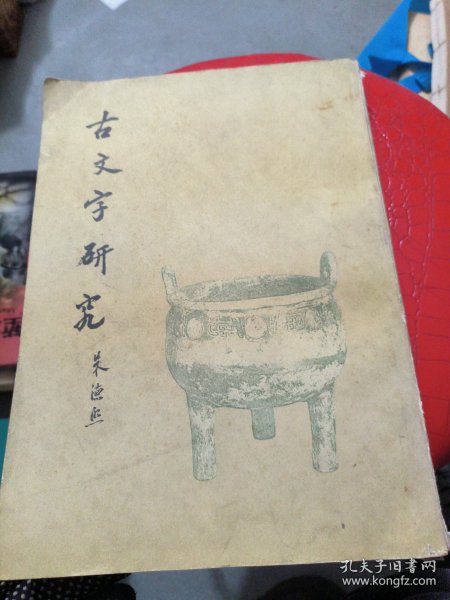 古文字研究
朱德熙
孔夫子旧书网
www.kongfz.com